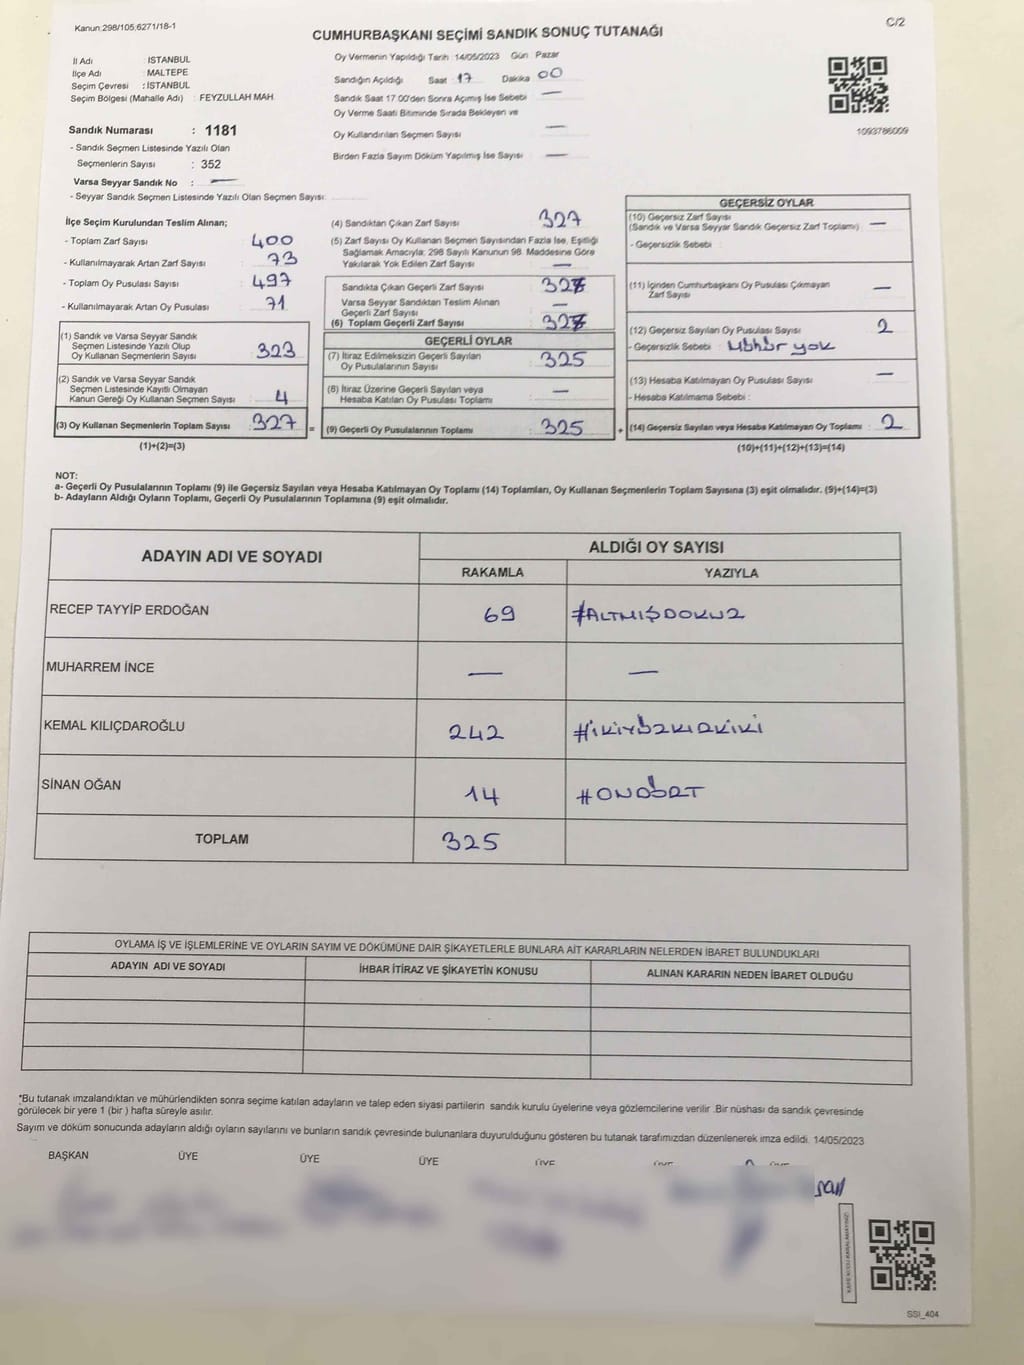 Kanun:298/105;6271/18-1
C/2
CUMHURBAŞKANI SEÇİMİ SANDIK SONUÇ TUTANAĞI
İl Adı : İSTANBUL
İlçe Adı : MALTEPE
Seçim Çevresi : İSTANBUL
Seçim Bölgesi (Mahalle Adı) : FEYZULLAH MAH.
Sandık Numarası : 1181
- Sandık Seçmen Listesinde Yazılı Olan
Seçmenlerin Sayısı : 352
Varsa Seyyar Sandık No : —
- Seyyar Sandık Seçmen Listesinde Yazılı Olan Seçmen Sayısı:
Oy Vermenin Yapıldığı Tarih :14/05/2023 Gün : Pazar
Sandığın Açıldığı Saat : 17 Dakika : 00
Sandık Saat 17.00'den Sonra Açımış İse Sebebi : —
Oy Verme Saati Bitiminde Sırada Bekleyen ve
Oy Kullandırılan Seçmen Sayısı : —
Birden Fazla Sayım Döküm Yapılmış İse Sayısı : —
1093786009
İlçe Seçim Kurulundan Teslim Alınan;
- Toplam Zarf Sayısı : 400
- Kullanılmayarak Artan Zarf Sayısı : 73
- Toplam Oy Pusulası Sayısı : 497
- Kullanılmayarak Artan Oy Pusulası : 71
(1) Sandık ve Varsa Seyyar Sandık
Seçmen Listesinde Yazılı Olup
Oy Kullanan Seçmenlerin Sayısı : 323
(2) Sandık ve Varsa Seyyar Sandık
Seçmen Listesinde Kayıtlı Olmayan
Kanun Gereği Oy Kullanan Seçmen Sayısı : 4
(3) Oy Kullanan Seçmenlerin Toplam Sayısı : 327
(1)+(2)=(3)
(4) Sandıktan Çıkan Zarf Sayısı : 327
(5) Zarf Sayısı Oy Kullanan Seçmen Sayısından Fazla İse, Eşitliği
Sağlamak Amacıyla; 298 Sayılı Kanunun 98. Maddesine Göre
Yakılarak Yok Edilen Zarf Sayısı : —
Sandıkta Çıkan Geçerli Zarf Sayısı : 327
Varsa Seyyar Sandıktan Teslim Alınan
Geçerli Zarf Sayısı : —
(6) Toplam Geçerli Zarf Sayısı : 327
GEÇERLİ OYLAR
(7) İtiraz Edilmeksizin Geçerli Sayılan
Oy Pusulalarının Sayısı : 325
(8) İtiraz Üzerine Geçerli Sayılan veya
Hesaba Katılan Oy Pusulası Toplamı : —
= (9) Geçerli Oy Pusulalarının Toplamı : 325
GEÇERSİZ OYLAR
(10) Geçersiz Zarf Sayısı
(Sandık ve Varsa Seyyar Sandık Geçersiz Zarf Toplamı) : —
- Geçersizlik Sebebi :
(11) İçinden Cumhurbaşkanı Oy Pusulası Çıkmayan
Zarf Sayısı : —
(12) Geçersiz Sayılan Oy Pusulası Sayısı : 2
- Geçersizlik Sebebi : Mühür yok
(13) Hesaba Katılmayan Oy Pusulası Sayısı : —
- Hesaba Katılmama Sebebi :
+ (14) Geçersiz Sayılan veya Hesaba Katılmayan Oy Toplamı : 2
(10)+(11)+(12)+(13)=(14)
NOT:
a- Geçerli Oy Pusulalarının Toplamı (9) ile Geçersiz Sayılan veya Hesaba Katılmayan Oy Toplamı (14) Toplamları, Oy Kullanan Seçmenlerin Toplam Sayısına (3) eşit olmalıdır. (9)+(14)=(3)
b- Adayların Aldığı Oyların Toplamı, Geçerli Oy Pusulalarının Toplamına (9) eşit olmalıdır.
ADAYIN ADI VE SOYADI
ALDIĞI OY SAYISI
RAKAMLA YAZIYLA
RECEP TAYYİP ERDOĞAN 69 #ALTMIŞDOKUZ
MUHARREM İNCE — —
KEMAL KILIÇDAROĞLU 242 #İKİYÜZKIRKİKİ
SİNAN OĞAN 14 #ONDÖRT
TOPLAM 325
OYLAMA İŞ VE İŞLEMLERİNE VE OYLARIN SAYIM VE DÖKÜMÜNE DAİR ŞİKAYETLERLE BUNLARA AİT KARARLARIN NELERDEN İBARET BULUNDUKLARI
ADAYIN ADI VE SOYADI İHBAR İTİRAZ VE ŞİKAYETİN KONUSU ALINAN KARARIN NEDEN İBARET OLDUĞU
*Bu tutanak imzalandıktan ve mühürlendikten sonra seçime katılan adayların ve talep eden siyasi partilerin sandık kurulu üyelerine veya gözlemcilerine verilir .Bir nüshası da sandık çevresinde
görülecek bir yere 1 (bir ) hafta süreyle asılır.
Sayım ve döküm sonucunda adayların aldığı oyların sayılarını ve bunların sandık çevresinde bulunanlara duyurulduğunu gösteren bu tutanak tarafımızdan düzenlenerek imza edildi. 14/05/2023
BAŞKAN ÜYE ÜYE ÜYE ÜYE ÜYE ÜYE
KARE KODU KARALAMAYINIZ
SSI_404